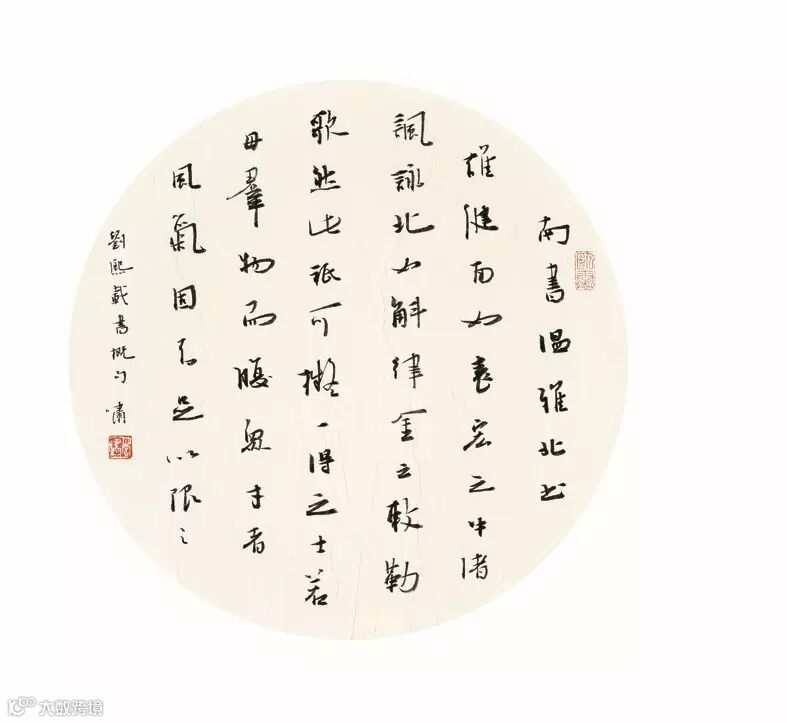 南書温雅北書
雄健南如袁宏之牛渚
諷詠北如斛律金之敕勒
歌然此祇可擬一得之士若
母羣物而腹眾才者
風氣固不足以限之
劉熙載書概句 嘯
大数跨境